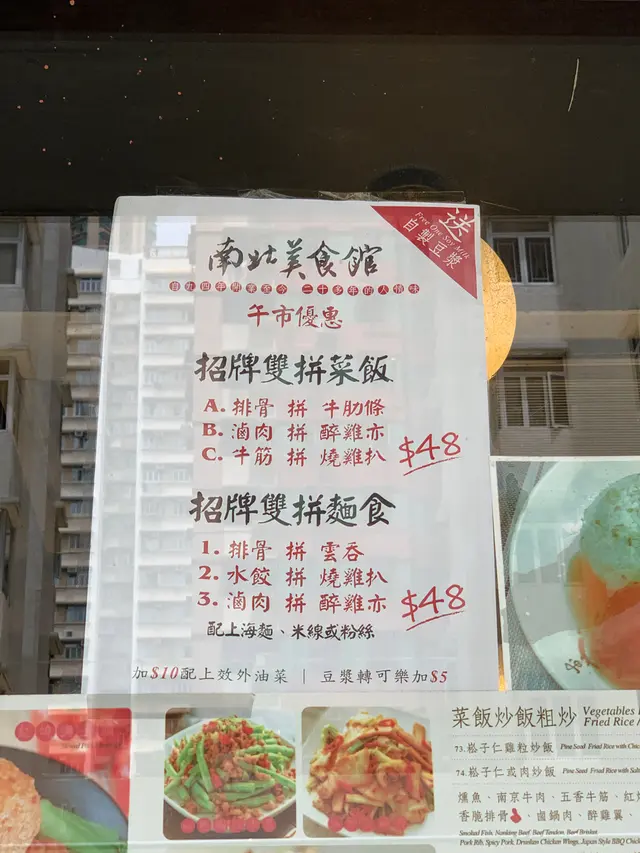 送
Free One Soy Milk
自製豆漿
南北美食館
自九四年開業至今 二十多年的人情味
午市優惠
招牌雙拼菜飯
A. 排骨 拼 牛肋條
B. 滷肉 拼 醉雞亦
C. 牛筋 拼 燒雞扒
$48
招牌雙拼麵食
1. 排骨 拼 雲吞
2. 水餃 拼 燒雞扒
3. 滷肉 拼 醉雞亦
$48
配上海麵、米線或粉絲
加$10配上效外油菜 | 豆漿轉可樂加$5
菜飯炒飯粗炒 Vegetables
Fried Rice
73. 崧子仁雞粒炒飯 Pine Seed Fried Rice with
74. 崧子仁或肉炒飯 Pine Seed Fried Rice with
燻魚、南京牛肉、五香牛筋、
香脆排骨、鹵鍋肉、醉雞翼、
Smoked Fish, Nanking Beef, Beef Tendon, Beef Brisket
Pork Rib, Spicy Pork, Drunken Chicken Wings, Japan Style BBQ